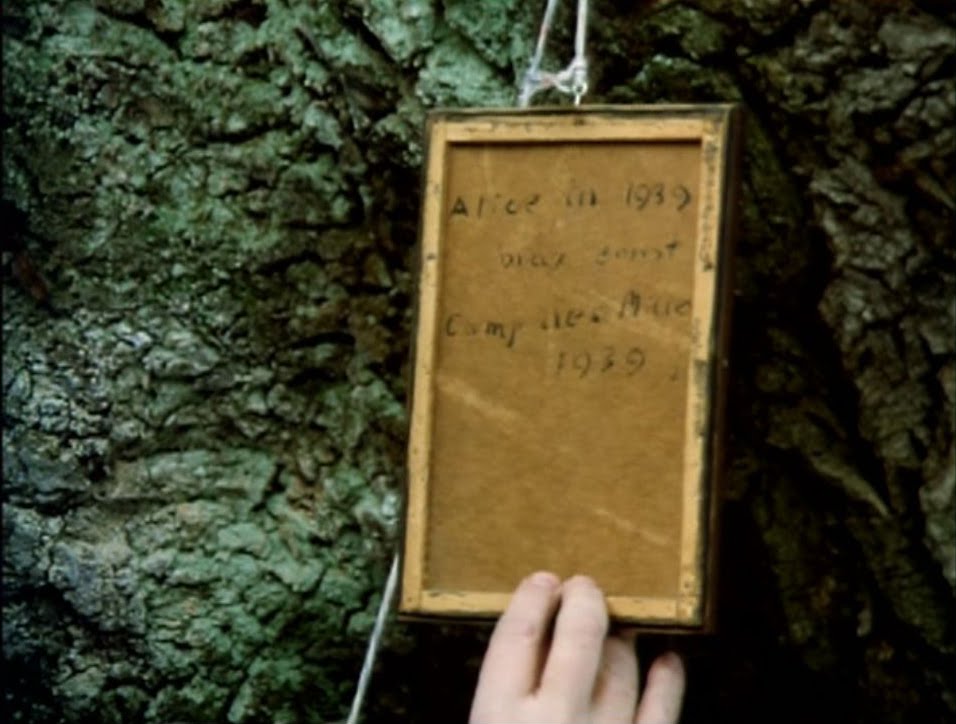 Alice in 1939
max ernst
Camp des Mille
1939.